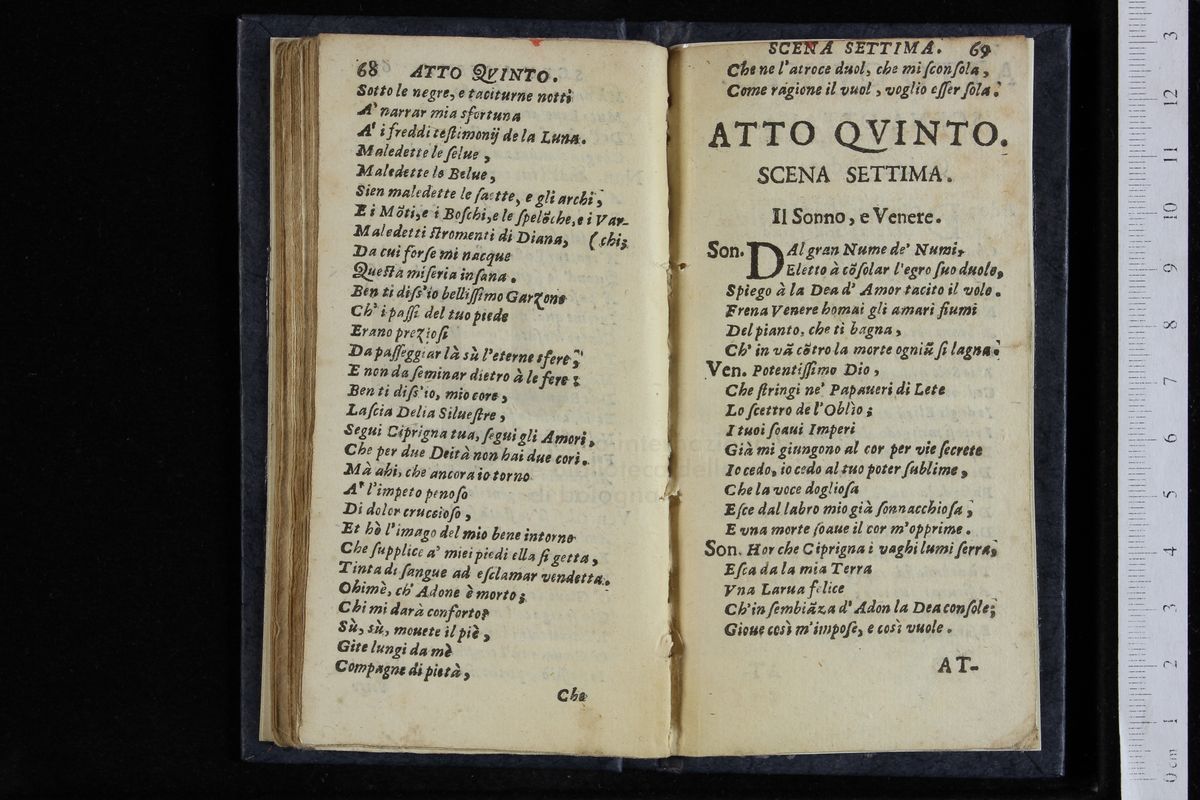 68 ATTO QVINTO.
Sotto le negre, e taciturne notti
A' narrar mia sfortuna
A' i freddi teſtimonij de la Luna.
Maledette le ſelue,
Maledette le Belue,
Sien maledette le ſaette, e gli archi;
E i Mõti, e i Boſchi, e le ſpelõche, e i Var-
Maledetti ſtromenti di Diana, (chi;
Da cui forſe mi nacque
Queſta miſeria inſana.
Ben ti diſs'io belliſſimo Garzone
Ch' i paſſi del tuo piede
Erano prezioſi
Da paſſeggiar là sù l'eterne sfere;
E non da ſeminar dietro à le fere:
Ben ti diſs'io, mio core,
Laſcia Delia Silueſtre,
Segui Ciprigna tua, ſegui gli Amori,
Che per due Deità non hai due cori.
Mà ahi, che ancora io torno
A' l'impeto penoſo
Di dolor cruccioſo,
Et hò l'imago del mio bene intorno
Che ſupplice a' miei piedi ella ſi getta,
Tinta di ſangue ad eſclamar vendetta.
Ohimè, ch' Adone è morto;
Chi mi darà conforto?
Sù, sù, mouete il piè,
Gite lungi da mè
Compagne di pietà,
Che
SCENA SETTIMA. 69
Che ne l'atroce duol, che mi ſconſola,
Come ragione il vuol, voglio eſſer ſola.
ATTO QVINTO.
SCENA SETTIMA.
Il Sonno, e Venere.
Son. DAl gran Nume de' Numi,
Eletto à cõſolar l'egro ſuo duolo,
Spiego à la Dea d' Amor tacito il volo.
Frena Venere homai gli amari fiumi
Del pianto, che ti bagna,
Ch' in vã cõtro la morte ogniũ ſi lagna.
Ven. Potentiſſimo Dio,
Che ſtringi ne' Papaueri di Lete
Lo ſcettro de l'Oblìo;
I tuoi ſoaui Imperi
Già mi giungono al cor per vie ſecrete
Io cedo, io cedo al tuo poter ſublime,
Che la voce doglioſa
Eſce dal labro mio già ſonnacchioſa;
E vna morte ſoaue il cor m'opprime.
Son. Hor che Ciprigna i vaghi lumi ſerra,
Eſca da la mia Terra
Vna Larua felice
Ch'in ſembiãza d' Adon la Dea conſole;
Gioue così m'impoſe, e così vuole.
AT-